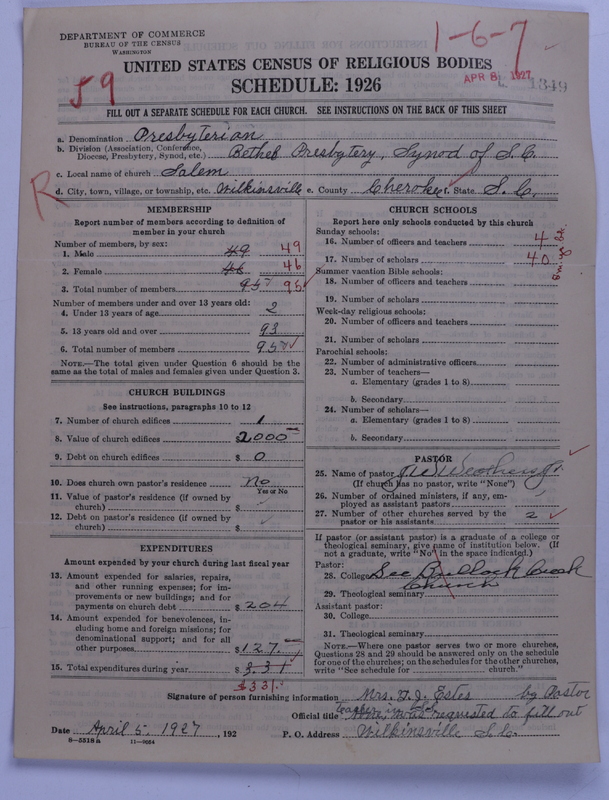 DEPARTMENT OF COMMERCE
BUREAU OF THE CENSUS
WASHINGTON
1-6-7
UNITED STATES CENSUS OF RELIGIOUS BODIES
APR 8 1927
1349
59
SCHEDULE: 1926
FILL OUT A SEPARATE SCHEDULE FOR EACH CHURCH. SEE INSTRUCTIONS ON THE BACK OF THIS SHEET
a. Denomination Presbyterian
b. Division (Association, Conference, Diocese, Presbytery, Synod, etc.) Bethel Presbytery, Synod of S.C.
c. Local name of church Salem
R
d. City, town, village, or township, etc. Wilkinsville e. County Cherokee f. State S.C.
MEMBERSHIP
Report number of members according to definition of
member in your church
Number of members, by sex:
1. Male 49 49
2. Female 46 46
3. Total number of members 95 95
Number of members under and over 13 years old:
4. Under 13 years of age 2
5. 13 years old and over 93
6. Total number of members 95
NOTE.—The total given under Question 6 should be the
same as the total of males and females given under Question 3.
CHURCH BUILDINGS
See instructions, paragraphs 10 to 12
7. Number of church edifices 1
8. Value of church edifices $2000
9. Debt on church edifices $ 0
10. Does church own pastor's residence No
Yes or No
11. Value of pastor's residence (if owned by
church) $
12. Debt on pastor's residence (if owned by
church) $
EXPENDITURES
Amount expended by your church during last fiscal year
13. Amount expended for salaries, repairs,
and other running expenses; for im-
provements or new buildings; and for
payments on church debt $ 204
14. Amount expended for benevolences, in-
cluding home and foreign missions; for
denominational support; and for all
other purposes $127
15. Total expenditures during year $331
$331
CHURCH SCHOOLS
Report here only schools conducted by this church
Sunday schools:
16. Number of officers and teachers 4
17. Number of scholars 40
Summer vacation Bible schools:
18. Number of officers and teachers
19. Number of scholars
Week-day religious schools:
20. Number of officers and teachers
21. Number of scholars
Parochial schools:
22. Number of administrative officers
23. Number of teachers—
a. Elementary (grades 1 to 8)
b. Secondary
24. Number of scholars—
a. Elementary (grades 1 to 8)
b. Secondary
PASTOR
25. Name of pastor
(If church has no pastor, write "None")
26. Number of ordained ministers, if any, em-
ployed as assistant pastors
27. Number of other churches served by the
pastor or his assistants 2
If pastor (or assistant pastor) is a graduate of a college or
theological seminary, give name of institution below. (If
not a graduate, write "No" in the space indicated.)
Pastor:
28. College See Bullock Creek
Church
29. Theological seminary
Assistant pastor:
30. College
31. Theological seminary
NOTE.—Where one pastor serves two or more churches,
Questions 28 and 29 should be answered only on the schedule
for one of the churches; on the schedules for the other churches,
write "See schedule for church."
Signature of person furnishing information Mrs. Estes by Pastor
Official title requested to fill out
Date April 5, 1927, 192 P. O. Address Wilkinsville S.C.
8—5518a 11—9064